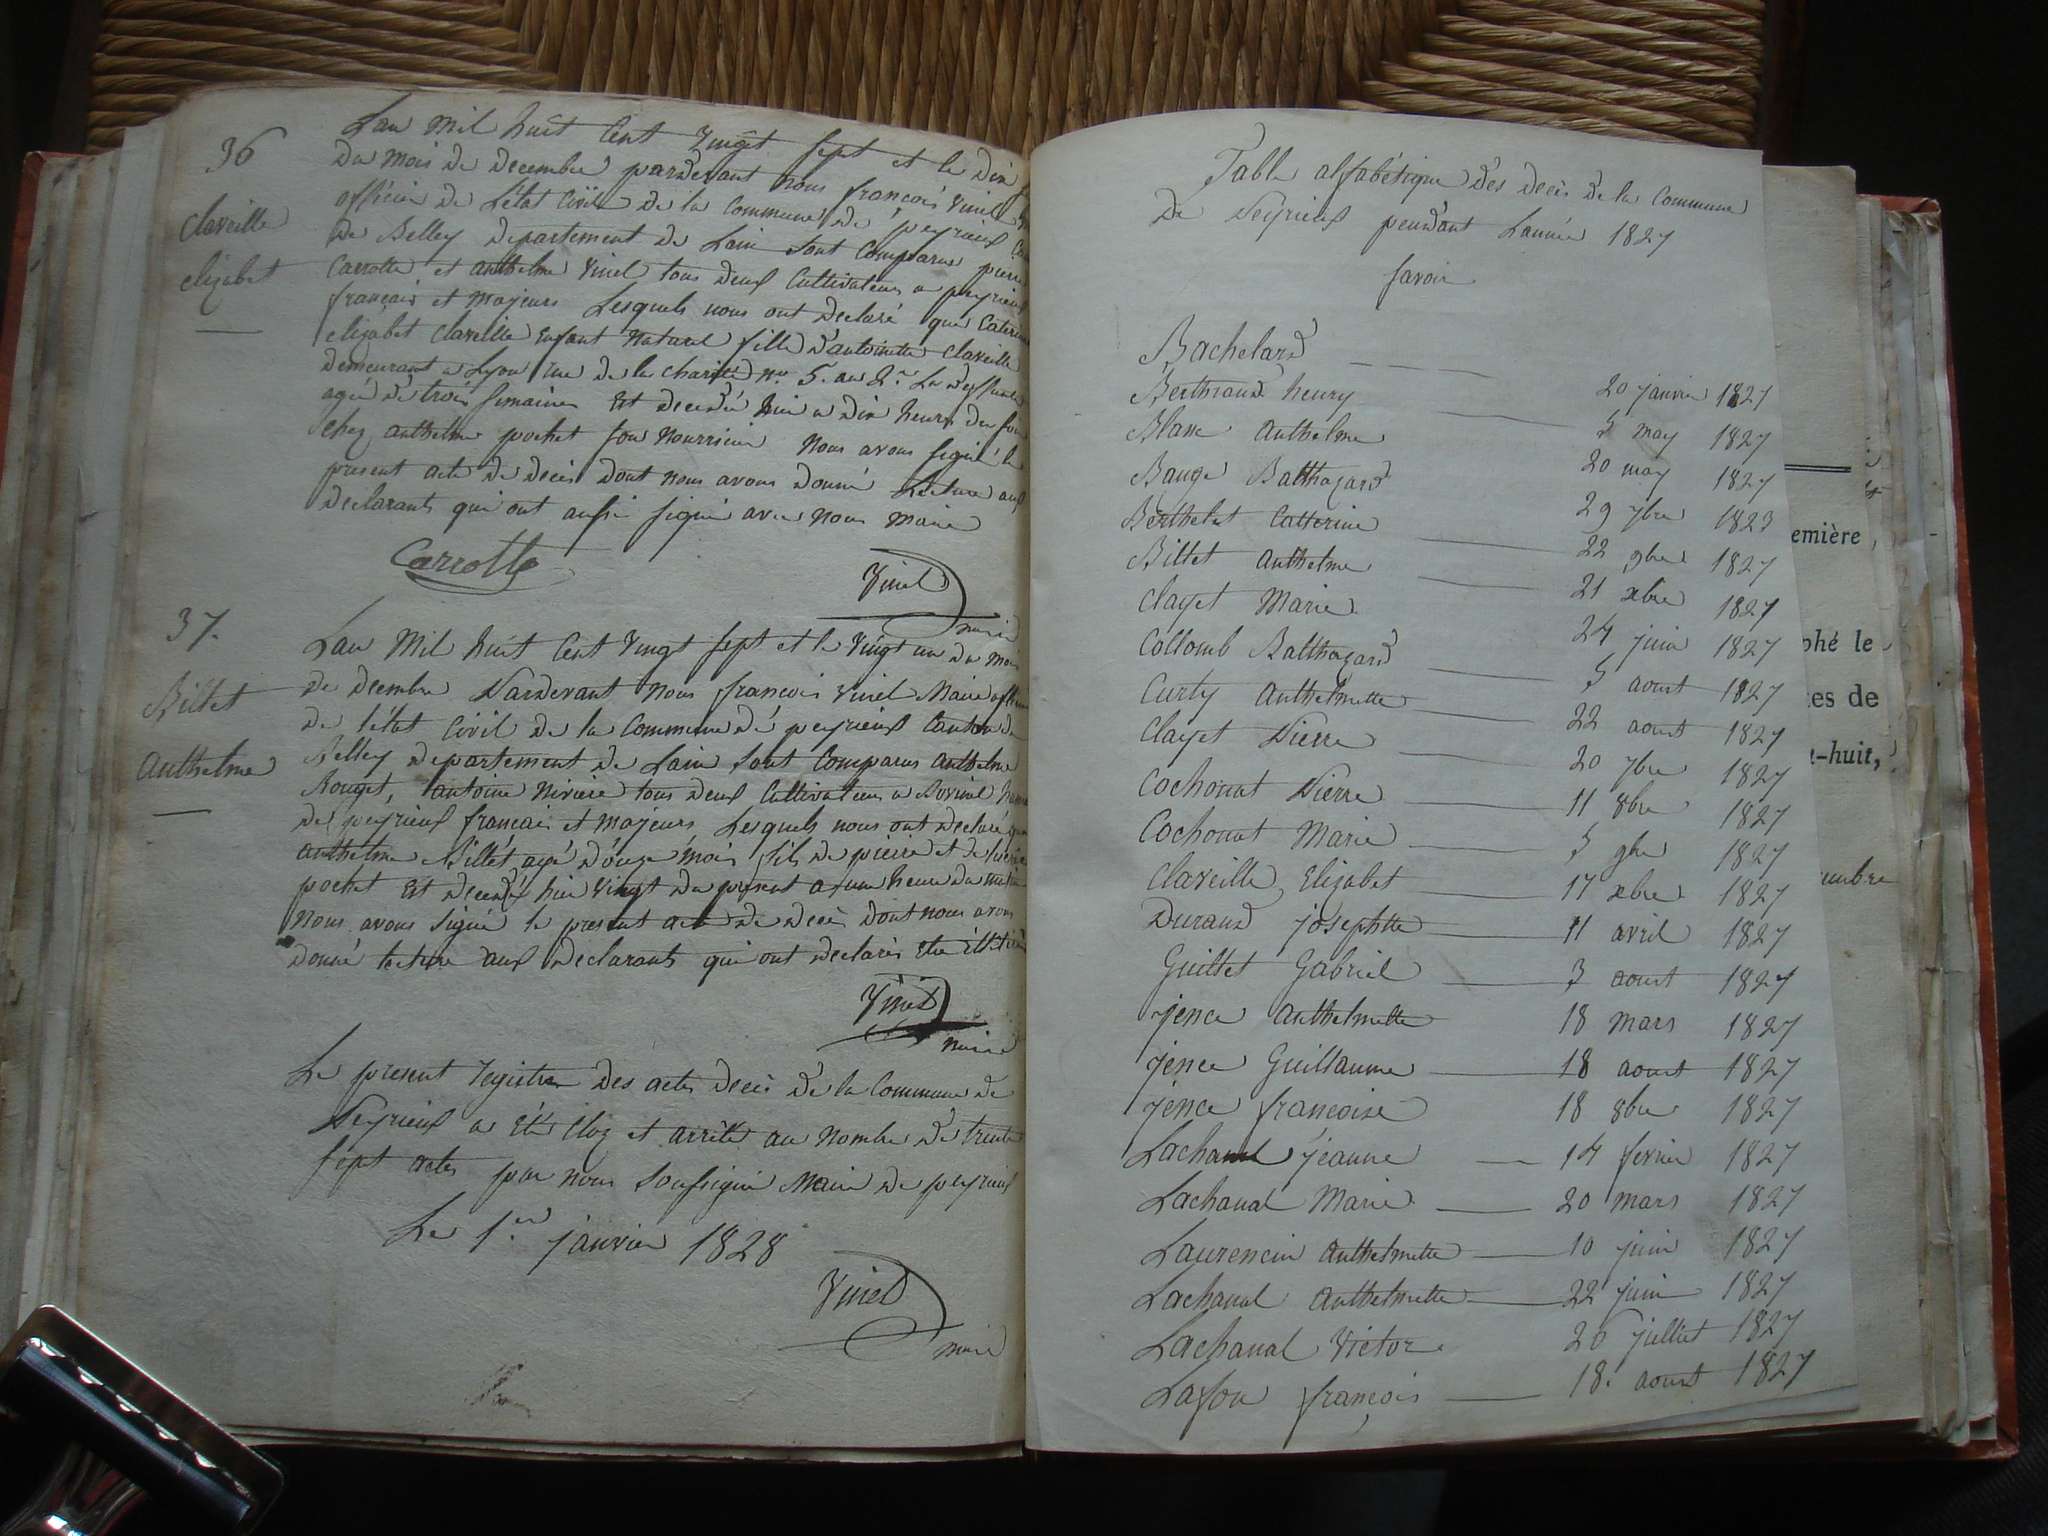 36
Claveille
elizabet
Lan mil huit Cent vingt sept et le dix
du mois de decembre pardevant nous françois Vinel
officier de L'état Civile de la Commune de peyrieux
de Belley departement de Lain sont Comparus pierre
Carrotte et anthelme Vinel tous deux Cultivateurs a peyrieux
français et majeurs Lesquels nous ont declaré que Caterine
elizabet Claveille enfant naturel fille d'antoinette Claveille
demeurant a Lyon rue de la charité no. 5. au 2e. La deffunte
agée de trois semaines est decedée hier a dix heures du soir
chez anthelme pochet son nourricier nous avons signé le
present acte de decès dont nous avons donné Lecture aux
declarants qui ont aussi signé avec nous maire
Carrotte
Vinel
maire
37.
Billet
Anthelme
Lan mil huit Cent Vingt sept et le Vingt un du mois
de decembre Pardevant nous françois Vinel Maire officier
de l'état Civil de la Commune de peyrieux Canton de
Belley departement de Lain sont Comparus anthelme
Rouget, antoine Riviere tous deux Cultivateurs a
de peyrieux français et majeurs Lesquels nous ont declaré que
anthelme Billet agé d'onze mois fils de pierre et de
pochet est decedé hier vingt du present a une heure du matin
nous avons signé le present acte de decès dont nous avons
donné lecture aux declarants qui ont declarés etre illitérés
Vinel
maire
Le present registre des actes decès de la Commune de
Peyrieux a été Cloz et arrêté au nombre de trente
sept actes par nous soussigné Maire de peyrieux
Le 1.er janvier 1828
Vinel
maire
Table alfabétique des decès de la Commune
De Peyrieux pendant Lannée 1827
savoir
Bachelard
Berthraud henry 20 janvier 1827
Blanc anthelme 5 may 1827
Bauge Balthazard 20 may 1827
Berthelet Catterine 29 7bre 1823
Billet anthelme 22 9bre 1827
Clayet Marie 21 xbre 1827
Collomb Balthazard 24 juin 1827
Curty anthelmette 5 aoust 1827
Clayet Pierre 22 aoust 1827
Cochonat Pierre 20 7bre 1827
Cochonat Marie 11 8bre 1827
Claveille Elizabet 5 9bre 1827
Durand josephte 17 xbre 1827
Guillet Gabriel 11 avril 1827
jence anthelmette 3 aoust 1827
jence Guillaume 18 mars 1827
jence françoise 18 aoust 1827
Lachanal jeanne 18 8bre 1827
Lachanal Marie 14 fevrier 1827
Laurencin anthelmette 20 mars 1827
Lachanal anthelmette 10 juin 1827
Lachanal Victor 22 juin 1827
Lafon françois 26 juillet 1827
18. aoust 1827
emière,
phé le
es de
t-huit,
embre